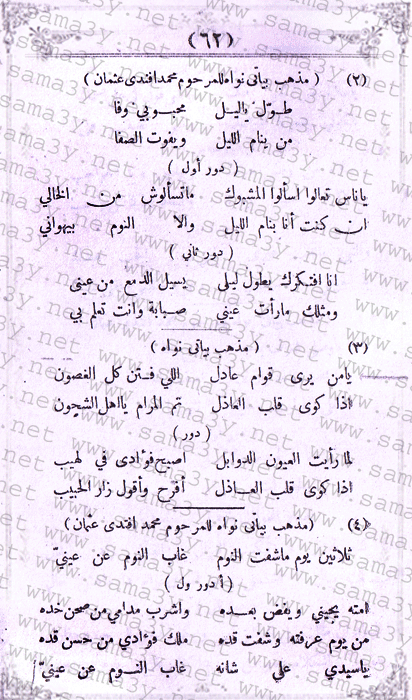 (٦٢)
(٢) ( مذهب بياتى نواه للمرحوم محمد افندى عثمان )
طوّل ياليل محبوبي وفا
من ينام الليل ويفوت الصفا
( دور أول )
ياناس تعالوا اسألوا المشبوك ماتسألوش من الخالي
ان كنت أنا بنام الليل والا النوم بيهواني
( دور ثاني )
انا افتكرك يطول ليلى يسيل الدمع من عينى
ومثلك مارأت عيني صبابة وانت تعلم بي
(٣) ( مذهب بياتى نواه )
يامن يرى قوام عادل اللي فتن كل الغصون
اذا كوى قلب العاذل تم المرام ياأهل الشجون
( دور )
لما رأيت العيون الدوابل اصبح فؤادى في لهيب
اذا كوى قلب العاذل أفرح وأقول زار الحبيب
(٤) (مذهب بياتى نواه للمرحوم محمد افندى عثمان )
ثلاثين يوم ماشفت النوم غاب النوم عن عينيّ
( أ دور ول )
امته يجيني ويفض بعده واشرب مدامى من صحن خده
من يوم عرفته وشفت قده ملك فؤادي من حسن قده
ياسيدي علي شانه غاب النوم عن عينيّ
www.sama3y.net